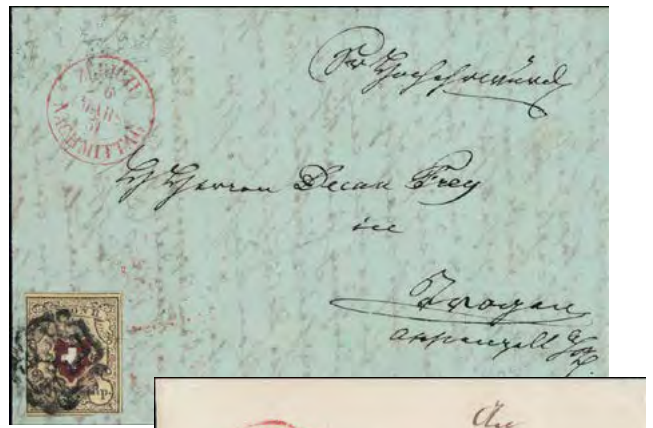 ZÜRICH
6
MÄRZ
51
NACHMITTAG
Sr Hochehrwürd
Herren Decan Frey
in
Trogen
Appenzell
Rp.
An